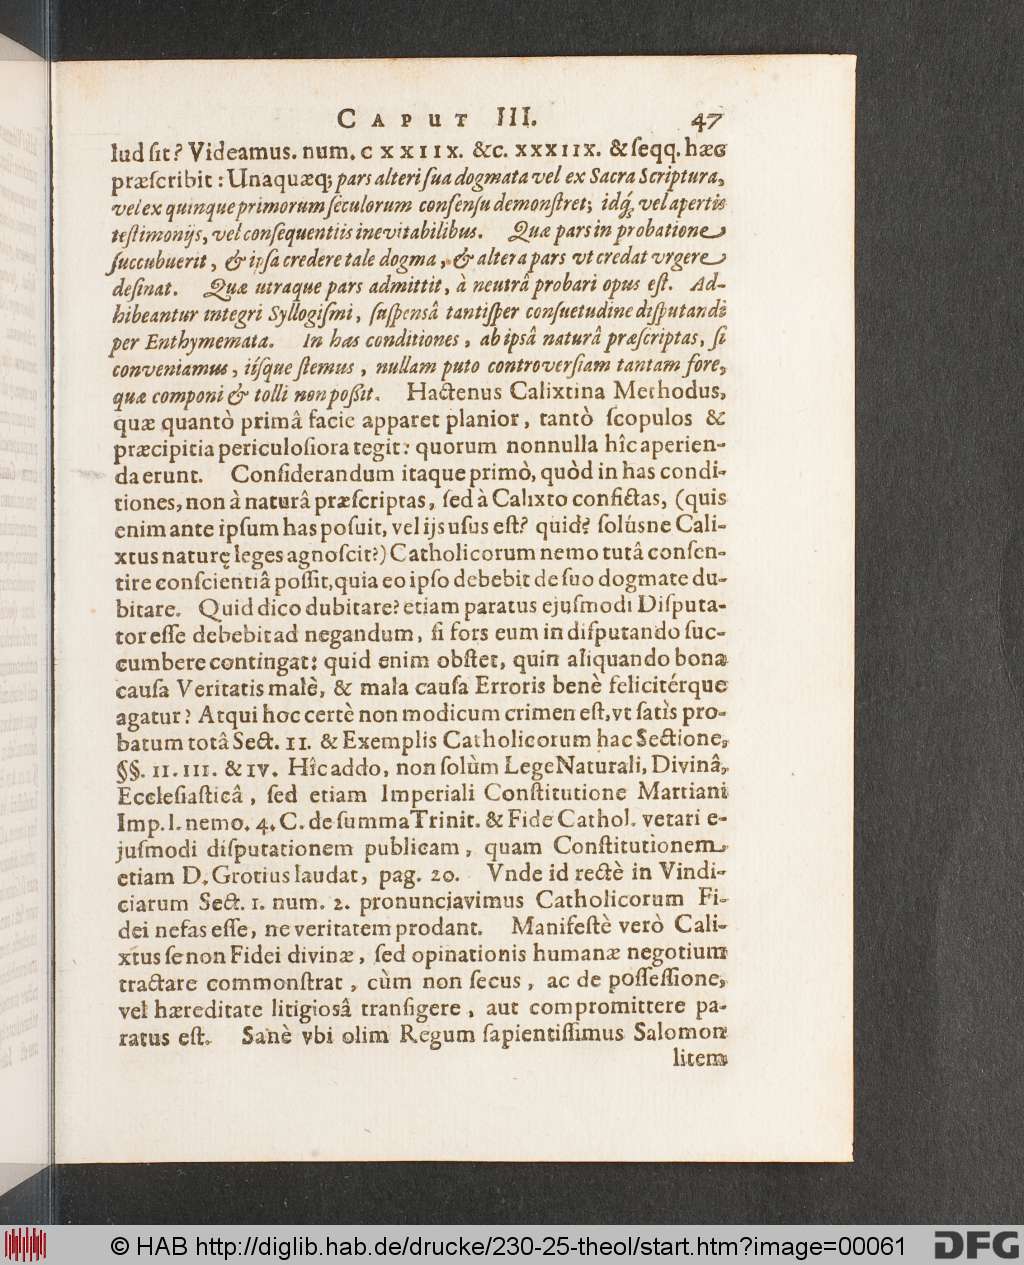 CAPUT III. 47
lud ſit? Videamus. num. CXXIIX. &c. XXXIIX. & ſeqq. hæc
præſcribit: Unaquæq; pars alteri ſua dogmata vel ex Sacra Scriptura,
vel ex quinque primorum ſeculorum conſenſu demonſtret; idq́; vel apertis
teſtimonijs, vel conſequentiis inevitabilibus. Quæ pars in probatione
ſuccubuerit, & ipſa credere tale dogma, & altera pars vt credat vrgere
deſinat. Quæ utraque pars admittit, à neutrâ probari opus eſt. Ad-
hibeantur integri Syllogiſmi, ſuſpensâ tantiſper conſuetudine diſputandi
per Enthymemata. In has conditiones, ab ipsâ naturâ præſcriptas, ſi
conveniamus, iiſque ſtemus, nullam puto controverſiam tantam fore,
quæ componi & tolli non poßit. Hactenus Calixtina Methodus,
quæ quantò primâ facie apparet planior, tantò ſcopulos &
præcipitia periculoſiora tegit: quorum nonnulla hîc aperien-
da erunt. Conſiderandum itaque primò, quòd in has condi-
tiones, non à naturâ præſcriptas, ſed à Calixto confictas, (quis
enim ante ipſum has poſuit, vel ijs uſus eſt? quid? ſolúsne Cali-
xtus naturę leges agnoſcit?) Catholicorum nemo tutâ conſen-
tire conſcientiâ poſſit, quia eo ipſo debebit de ſuo dogmate du-
bitare. Quid dico dubitare? etiam paratus ejuſmodi Diſputa-
tor eſſe debebit ad negandum, ſi fors eum in diſputando ſuc-
cumbere contingat: quid enim obſtet, quin aliquando bona
cauſa Veritatis malè, & mala cauſa Erroris benè felicitérque
agatur? Atqui hoc certè non modicum crimen eſt, vt ſatìs pro-
batum totâ Sect. II. & Exemplis Catholicorum hac Sectione,
§§. II. III. & IV. Hîc addo, non ſolùm Lege Naturali, Divinâ,
Eccleſiaſticâ, ſed etiam Imperiali Conſtitutione Martiani
Imp. l. nemo. 4. C. de ſumma Trinit. & Fide Cathol. vetari e-
juſmodi diſputationem publicam, quam Conſtitutionem
etiam D. Grotius laudat, pag. 20. Vnde id rectè in Vindi-
ciarum Sect. 1. num. 2. pronunciavimus Catholicorum Fi-
dei nefas eſſe, ne veritatem prodant. Manifeſtè verò Cali-
xtus ſe non Fidei divinæ, ſed opinationis humanæ negotium
tractare commonſtrat, cùm non ſecus, ac de poſſeſſione,
vel hæreditate litigiosâ tranſigere, aut compromittere pa-
ratus eſt. Sanè vbi olim Regum ſapientiſſimus Salomon
litem
© HAB http://diglib.hab.de/drucke/230-25-theol/start.htm?image=00061 DFG